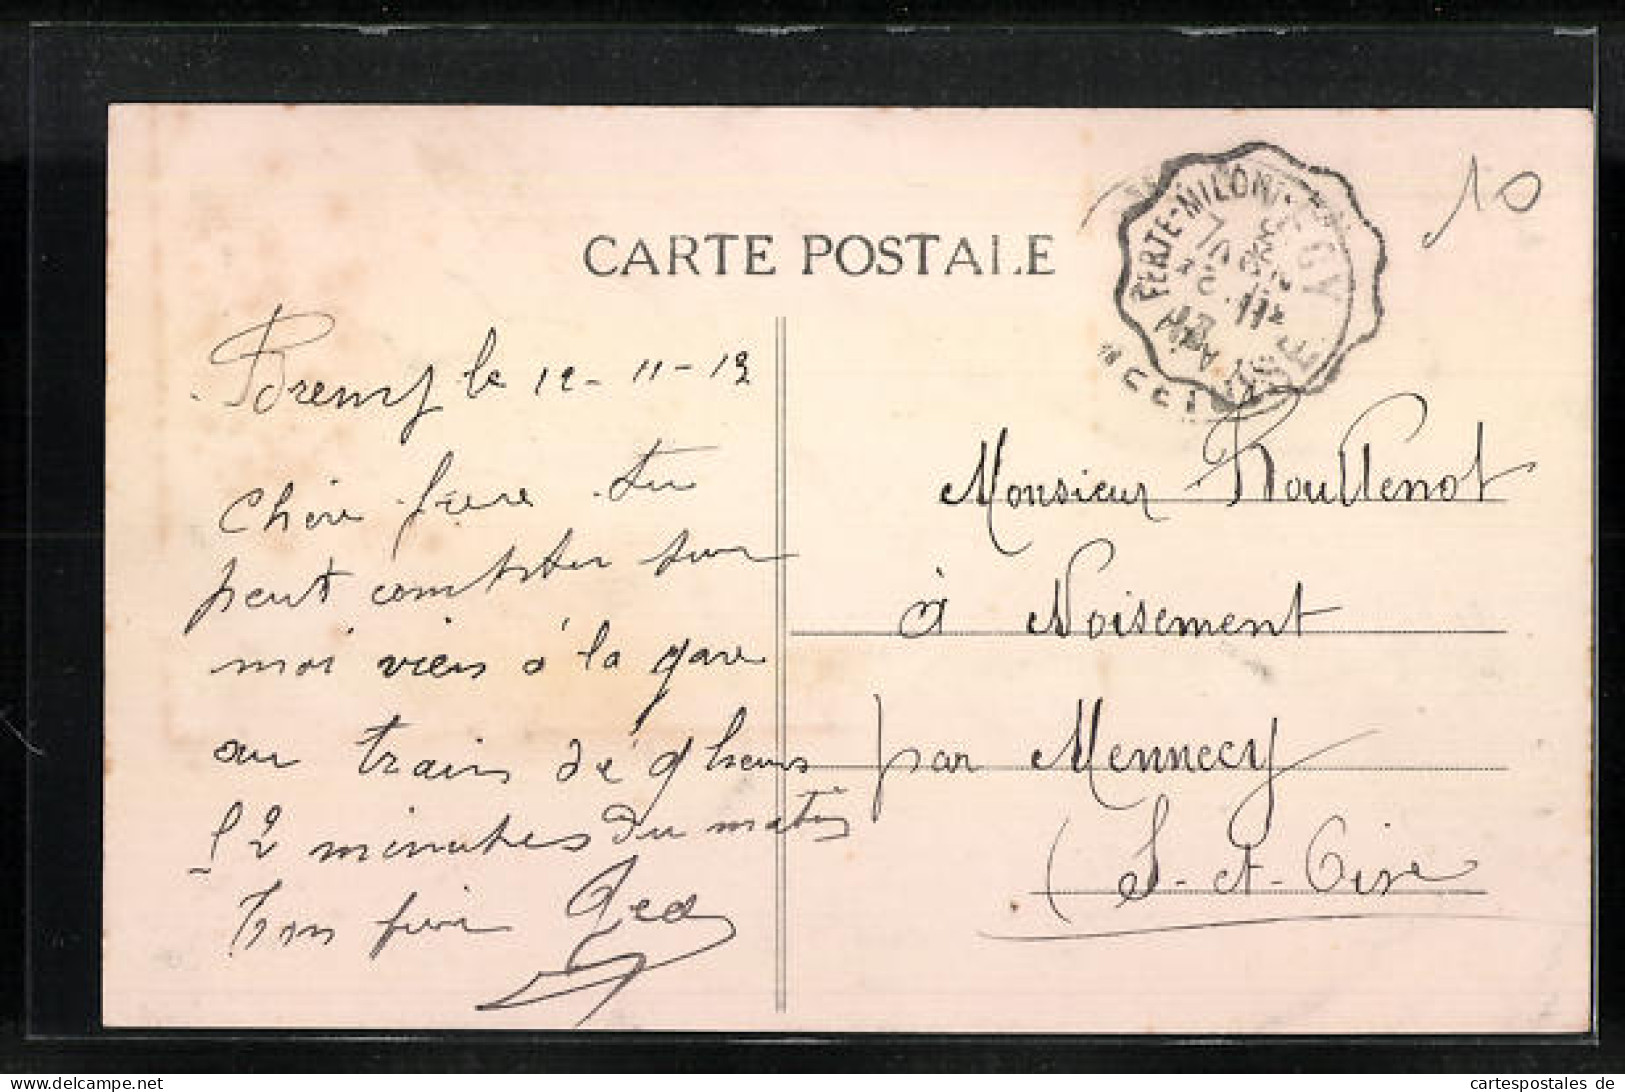 CARTE POSTALE
10
FERTE-MILON
le 12-11-13
Chère frère tu
peut compter sur
moi viens à la gare
au train dé 9 heurs
52 minutes du matin
Ton frère
Monsieur Roullenot
à Noisement
par Mennecy
(S-et-Oise
www.cartespostales.de
cartespostales de